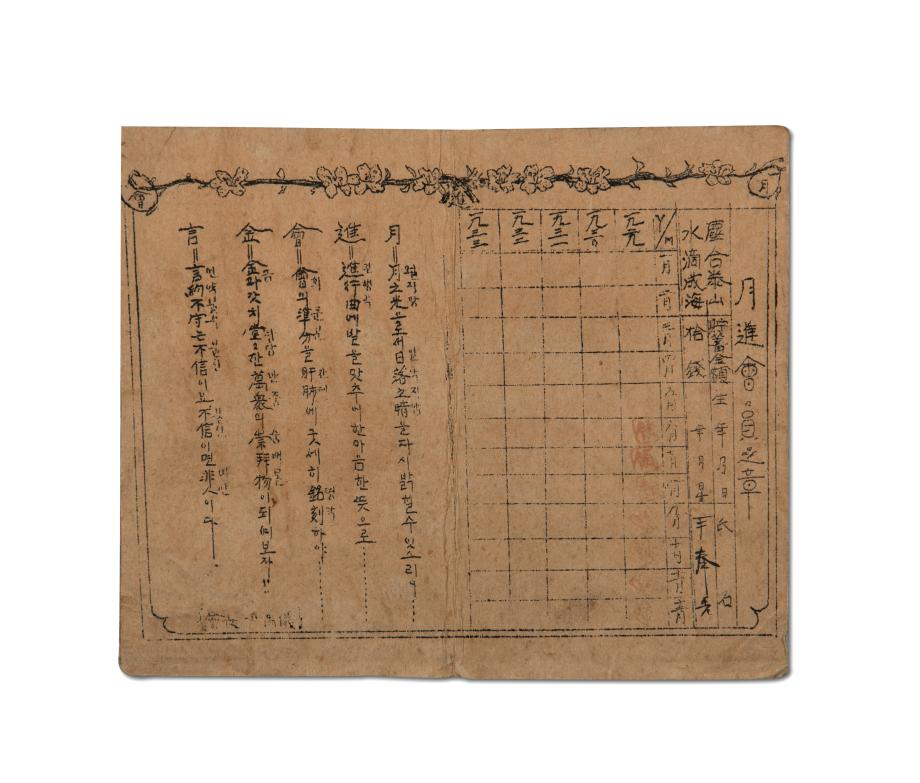 月進會員之章
塵合泰山 貯蓄金額 生年月日 氏名
水滴成海 拾錢 年 月
Y/M 一月 二月 三月 四月 五月 六月 七月 八月 九月 十月 十一月 十二月
一九二九
一九三〇
一九三一
一九三二
一九三三
月
會
月=月之光으로써日落之暗을다시밝힐수잇스리니......
進=進行曲에발을맛추어한마음한뜻으로......
會=會의準分을肝肺에굿세히銘刻하야......
金=金과갓치堂々한萬衆의崇拜物이되여보자!!
言=言約不守는不信이요不信이면非人이다